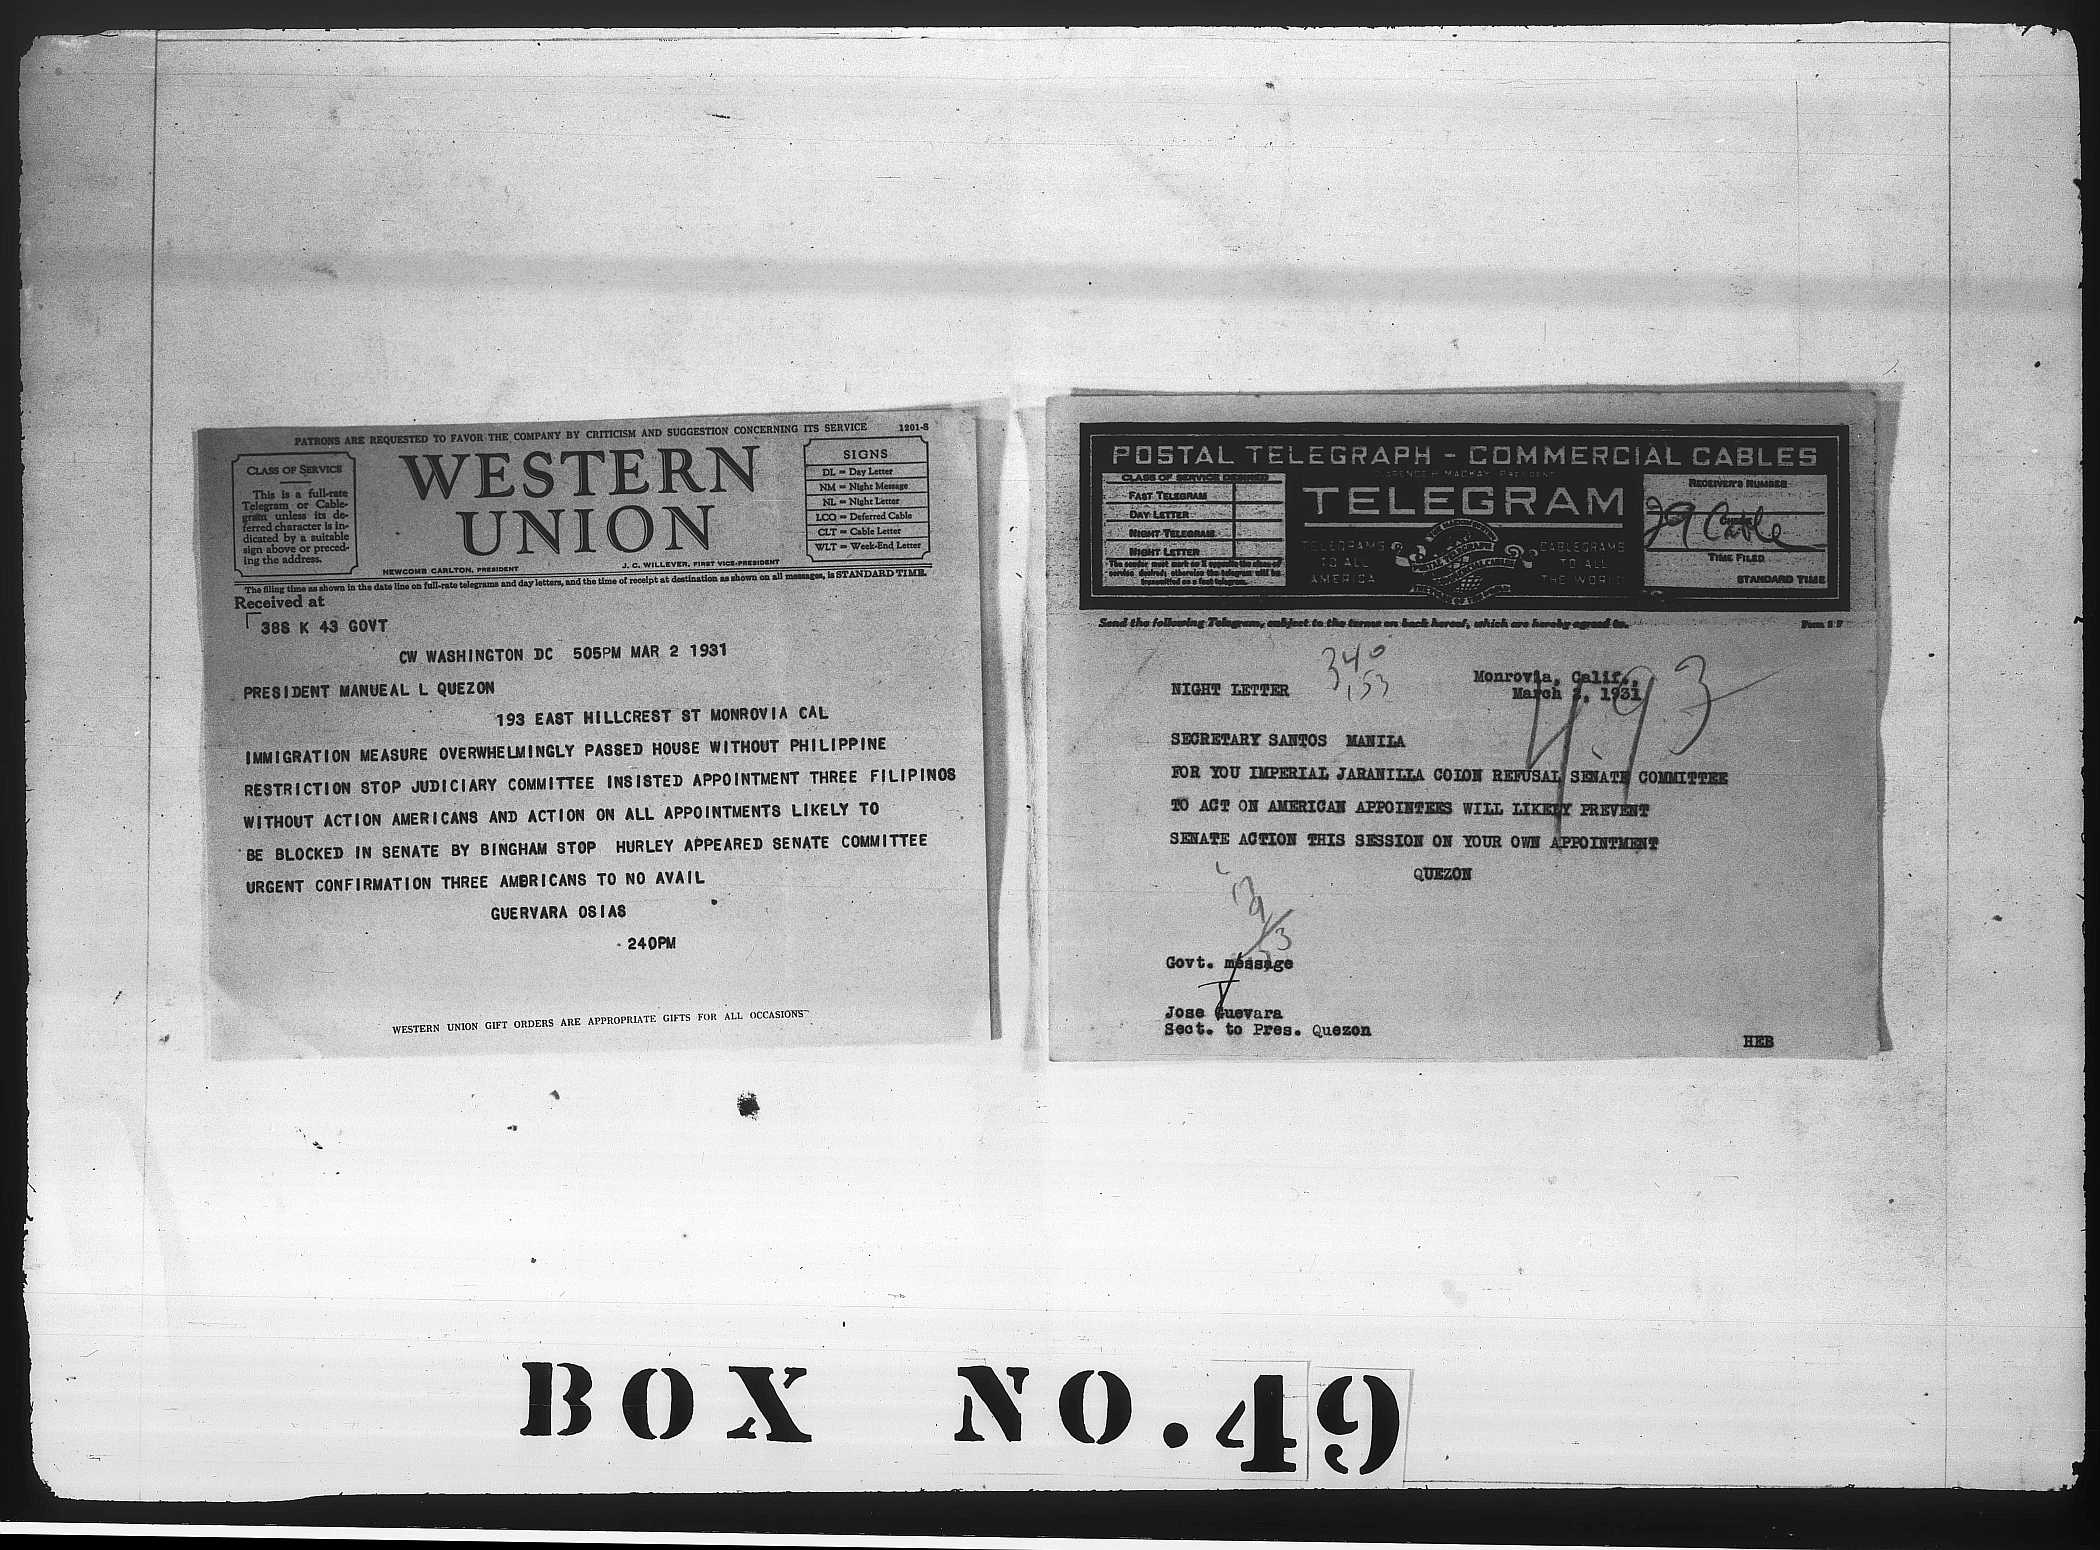 PATRONS ARE REQUESTED TO FAVOR THE COMPANY BY CRITICISM AND SUGGESTION CONCERNING ITS SERVICE 1201-S
CLASS OF SERVICE
This is a full-rate
Telegram or Cable-
gram unless its de-
ferred character is in-
dicated by a suitable
sign above or preced-
ing the address.
WESTERN
UNION
NEWCOMB CARLTON, PRESIDENT
J. C. WILLEVER, FIRST VICE-PRESIDENT
SIGNS
DL = Day Letter
NM = Night Message
NL = Night Letter
LCO = Deferred Cable
CLT = Cable Letter
WLT = Week-End Letter
The filing time as shown in the date line on full-rate telegrams and day letters, and the time of receipt at destination as shown on all messages, is STANDARD TIME.
Received at
388 K 43 GOVT
CW WASHINGTON DC 505PM MAR 2 1931
PRESIDENT MANUEAL L QUEZON
193 EAST HILLCREST ST MONROVIA CAL
IMMIGRATION MEASURE OVERWHELMINGLY PASSED HOUSE WITHOUT PHILIPPINE
RESTRICTION STOP JUDICIARY COMMITTEE INSISTED APPOINTMENT THREE FILIPINOS
WITHOUT ACTION AMERICANS AND ACTION ON ALL APPOINTMENTS LIKELY TO
BE BLOCKED IN SENATE BY BINGHAM STOP HURLEY APPEARED SENATE COMMITTEE
URGENT CONFIRMATION THREE AMBRICANS TO NO AVAIL
GUERVARA OSIAS
240PM
WESTERN UNION GIFT ORDERS ARE APPROPRIATE GIFTS FOR ALL OCCASIONS
POSTAL TELEGRAPH - COMMERCIAL CABLES
CLARENCE H. MACKAY, PRESIDENT
CLASS OF SERVICE DESIRED
FAST TELEGRAM
DAY LETTER
NIGHT TELEGRAM
NIGHT LETTER
The sender must mark an X opposite the class of
service desired; otherwise the telegram will be
transmitted as a fast telegram.
TELEGRAM
TELEGRAMS
TO ALL
AMERICA
CABLEGRAMS
TO ALL
THE WORLD
RECEIVER'S NUMBER
CHECK
29 Cable
TIME FILED
STANDARD TIME
Send the following Telegram, subject to the terms on back hereof, which are hereby agreed to.
340
1.53
4.93
NIGHT LETTER
Monrovia, Calif.,
March 2, 1931
SECRETARY SANTOS MANILA
FOR YOU IMPERIAL JARANILLA COLON REFUSAL SENATE COMMITTEE
TO ACT ON AMERICAN APPOINTEES WILL LIKELY PREVENT
SENATE ACTION THIS SESSION ON YOUR OWN APPOINTMENT
QUEZON
Govt. message
Jose Guevara
Sect. to Pres. Quezon
HEB
BOX NO. 49